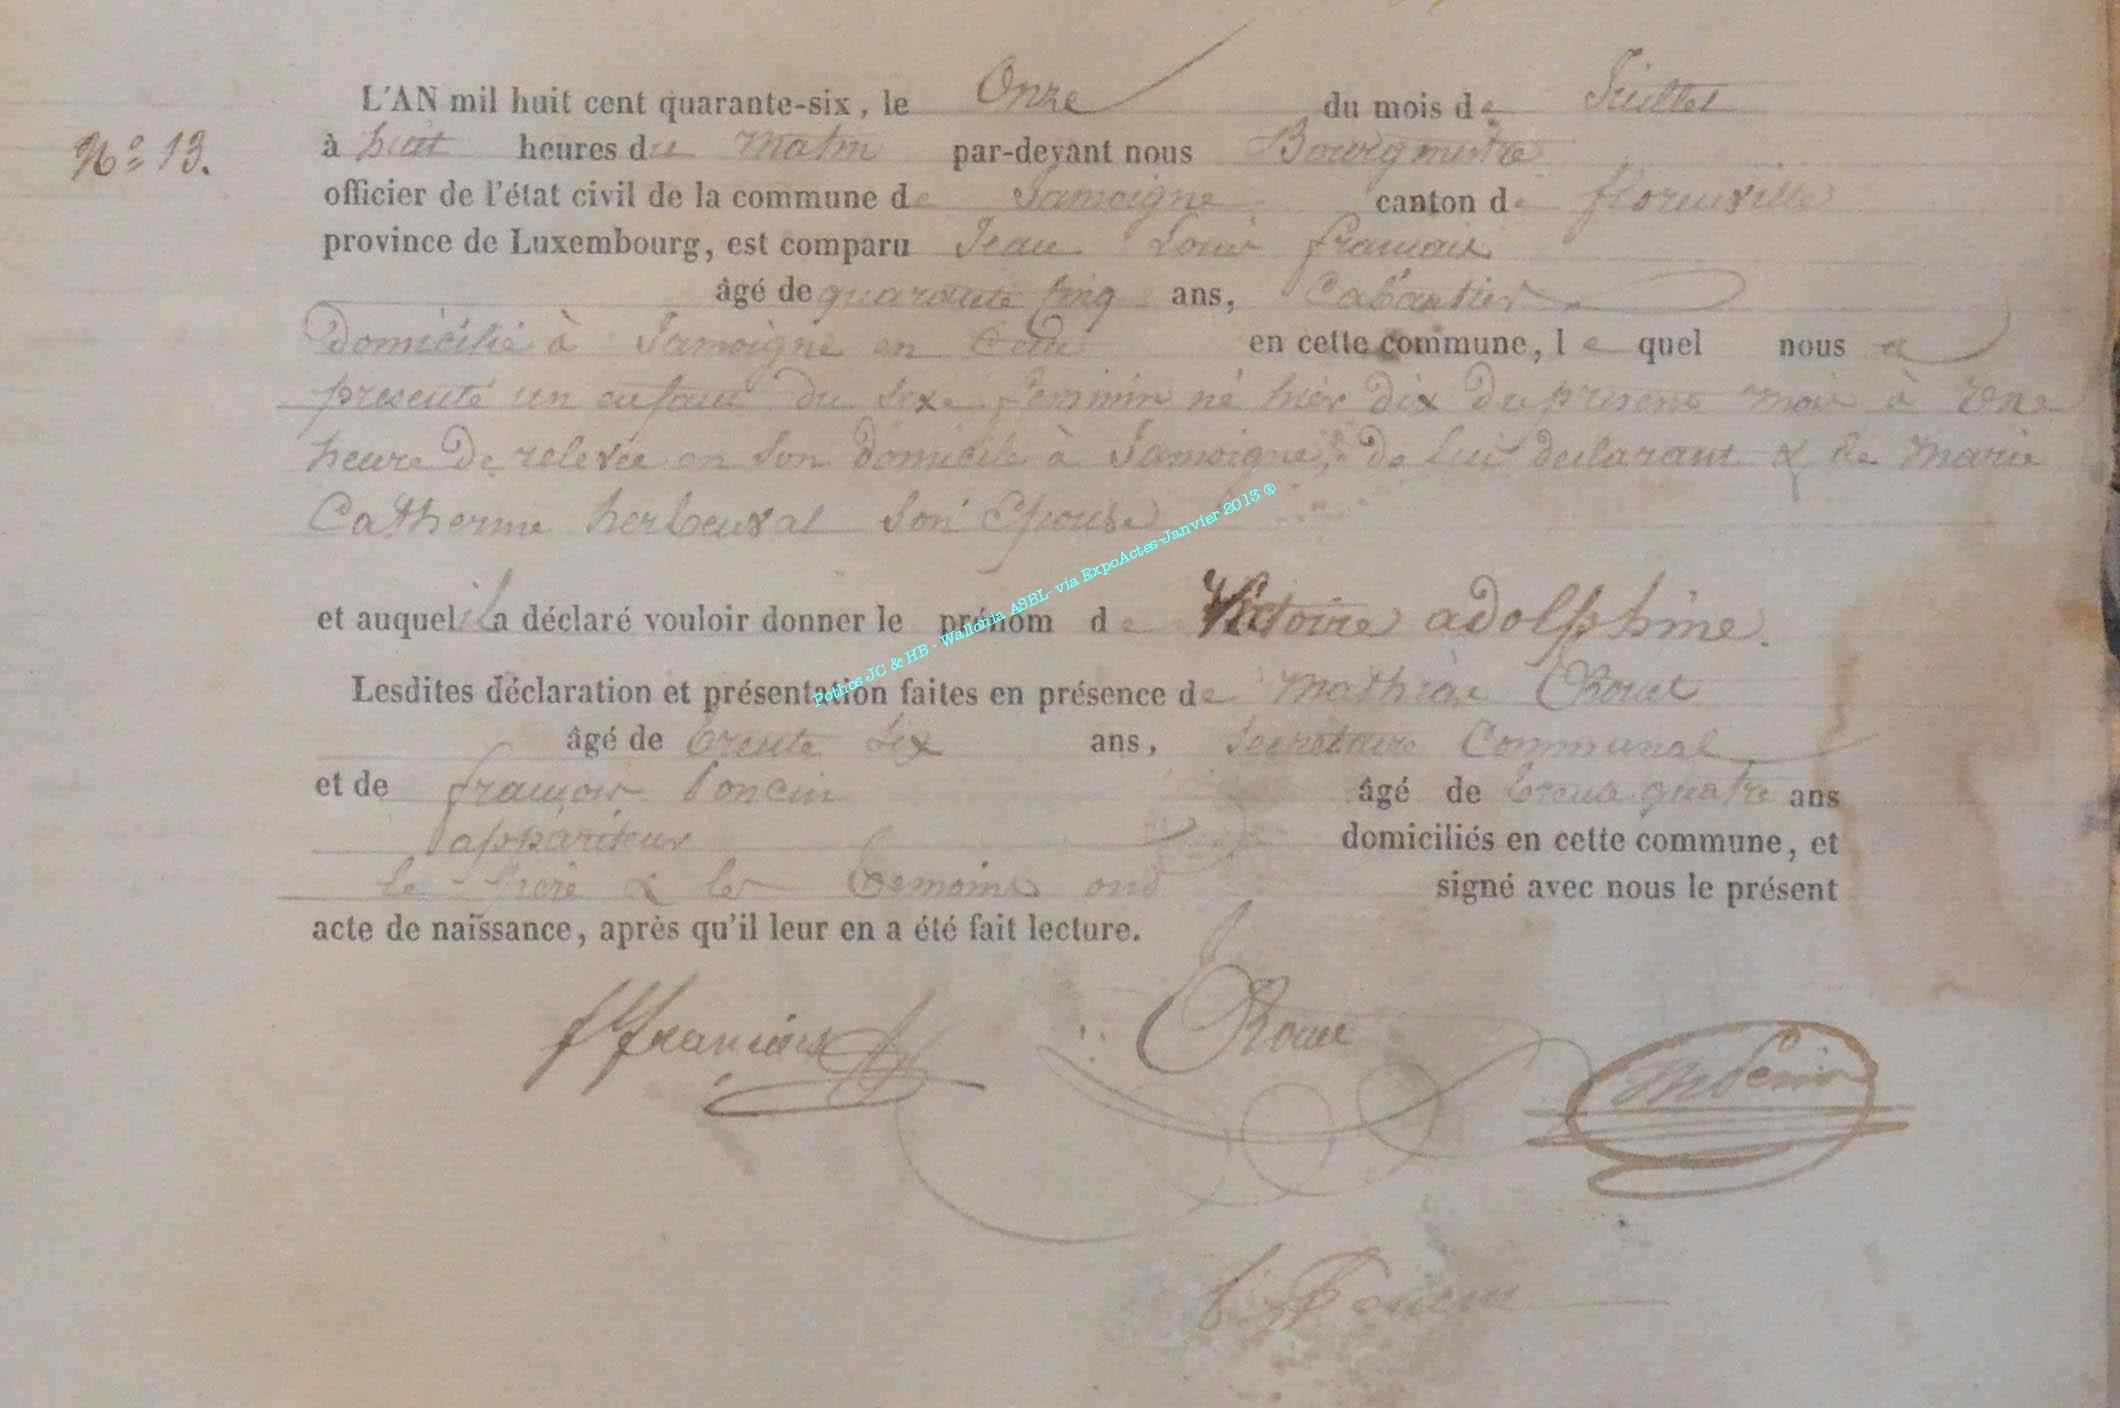 L'AN mil huit cent quarante-six, le Onze du mois de Juillet
N° 13.
à huit heures du matin par-devant nous Bourgmestre
officier de l'état civil de la commune de Jamoigne canton de florenville
province de Luxembourg, est comparu Jean Louis francois
âgé de quarante Cinq ans, Cabartier
Domicilié à Jamoigne en cette en cette commune, le quel nous a
presenté un enfant du sexe feminin né hier dix du present mois à une
heure De relevée en son domicile à Jamoigne, de lui declarant & de marie
Catherine herbeuval son Epouse
et auquel il a déclaré vouloir donner le prénom de Victoire adolphine.
Lesdites déclaration et présentation faites en présence de mathias Rouet
âgé de trente six ans, secretaire Communal
et de françois Poncin âgé de trente quatre ans
appariteur domiciliés en cette commune, et
le Pere & les temoins ont signé avec nous le présent
acte de naissance, après qu'il leur en a été fait lecture.
Rouet
Poncin
Pothos JC & HB - Wallonia ASBL- via ExpoActes-Janvier 2013 ®